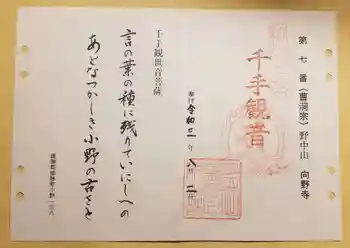 第七番（曹洞宗）野中山 向野寺
千手観音
奉行 令和三年八月二日
千手観世音菩薩
言の葉の種に残りていにしへの
あとなつかしき小野の古さと